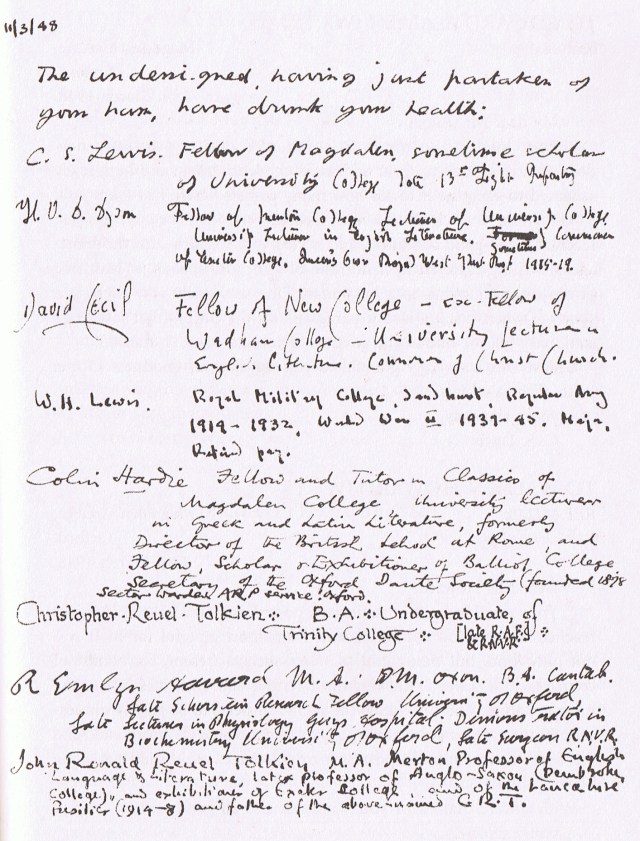 11/3/48
The undersigned, having just partaken of
your ham, have drunk your health:
C. S. Lewis. Fellow of Magdalen, sometime scholar
of University College late 13th Light Infantry
H. V. D. Dyson Fellow of Merton College Lecturer of University College
University Lecturer in English Literature. sometime Commoner
of Exeter College. Queen's Own Royal West Kent Regt 1915-19.
David Cecil Fellow of New College – ex-Fellow of
Wadham College – University Lecturer in
English Literature. Commoner of Christ Church.
W. H. Lewis. Royal Military College, Sandhurst. Regular Army
1914-1932. World War II 1939-45. Major,
Retired pay.
Colin Hardie Fellow and Tutor in Classics of
Magdalen College, University lecturer
in Greek and Latin Literature, formerly
Director of the British School at Rome and
Fellow, Scholar & Exhibitioner of Balliol College
Secretary of the Oxford Dante Society (founded 1878
Sector Warden ARP service Oxford.
Christopher Reuel Tolkien B.A. Undergraduate, of
Trinity College [late R.A.F.
& R.N.V.R.]
R Emlyn Havard M.A. DM. oxon. B.A. Cantab.
Late Research Fellow University of Oxford
Late lecturer in Physiology Guys Hospital. Demonstrator in
Biochemistry University of Oxford, late Surgeon R.N.V.R.
John Ronald Reuel Tolkien M.A. Merton Professor of English
Language & Literature, late professor of Anglo-Saxon (Pembroke
College), and exhibitioner of Exeter College, and of the Lancashire
Fusiliers (1914-8) and father of the above-named C.R.T.